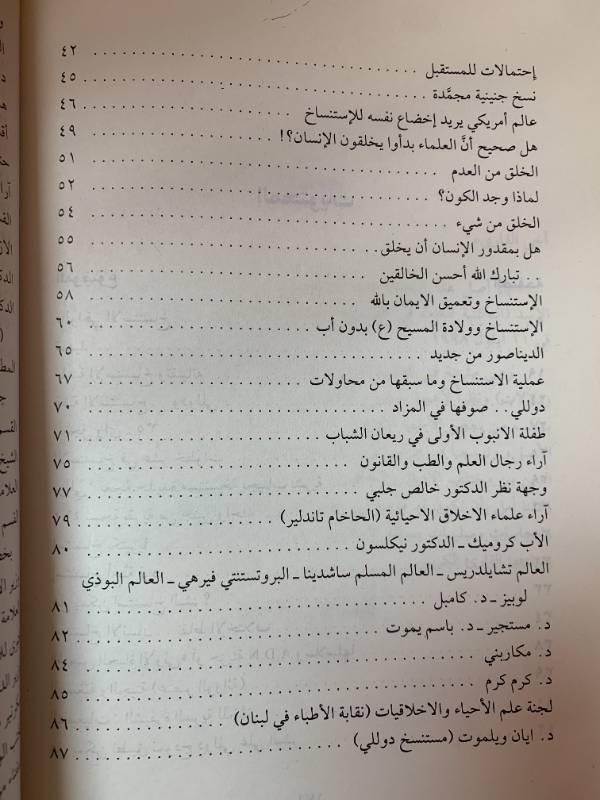 إحتمالات للمستقبل . . . . . . . . . . . . . . . . . . . . . . . . ٤٢
نسخ جنينية مجمَّدة . . . . . . . . . . . . . . . . . . . . . . . . ٤٥
عالم أمريكي يريد إخضاع نفسه للإستنساخ . . . . . . . . . . . . ٤٦
هل صحيح أنَّ العلماء بدأوا يخلقون الإنسان؟! . . . . . . . . . . ٤٩
الخلق من العدم . . . . . . . . . . . . . . . . . . . . . . . . ٥١
لماذا وجد الكون؟ . . . . . . . . . . . . . . . . . . . . . . . . ٥٢
الخلق من شيء . . . . . . . . . . . . . . . . . . . . . . . . ٥٤
هل بمقدور الإنسان أن يخلق . . . . . . . . . . . . . . . . . . ٥٥
. . تبارك الله أحسن الخالقين . . . . . . . . . . . . . . . . . . ٥٦
الإستنساخ وتعميق الايمان بالله . . . . . . . . . . . . . . . . ٥٨
الإستنساخ وولادة المسيح (ع) بدون أب . . . . . . . . . . . . ٦٠
الديناصور من جديد . . . . . . . . . . . . . . . . . . . . . . ٦٥
عملية الاستنساخ وما سبقها من محاولات . . . . . . . . . . . . ٦٧
دوللي . . صوفها في المزاد . . . . . . . . . . . . . . . . . . ٧٠
طفلة الانبوب الأولى في ريعان الشباب . . . . . . . . . . . . ٧١
آراء رجال العلم والطب والقانون . . . . . . . . . . . . . . . . ٧٥
وجهة نظر الدكتور خالص جلبي . . . . . . . . . . . . . . . . ٧٧
آراء علماء الاخلاق الاحيائية (الحاخام تاندلير) . . . . . . . . ٧٩
الأب كروميك ـ الدكتور نيكلسون . . . . . . . . . . . . . . . . ٨٠
العالم تشايلدريس ـ العالم المسلم ساشدينا ـ البروتستنتي فيرهي ـ العالم البوذي
لوبيز ـ د. كامبل . . . . . . . . . . . . . . . . . . . . . . . . ٨١
د. مستجير ـ د. باسم يموت . . . . . . . . . . . . . . . . . . ٨٢
د. مكاريني . . . . . . . . . . . . . . . . . . . . . . . . . . ٨٤
د. كرم كرم . . . . . . . . . . . . . . . . . . . . . . . . . . ٨٥
لجنة علم الأحياء والاخلاقيات (نقابة الأطباء في لبنان) . . . . ٨٦
د. ايان ويلموت (مستنسخ دوللي) . . . . . . . . . . . . . . . . ٨٧